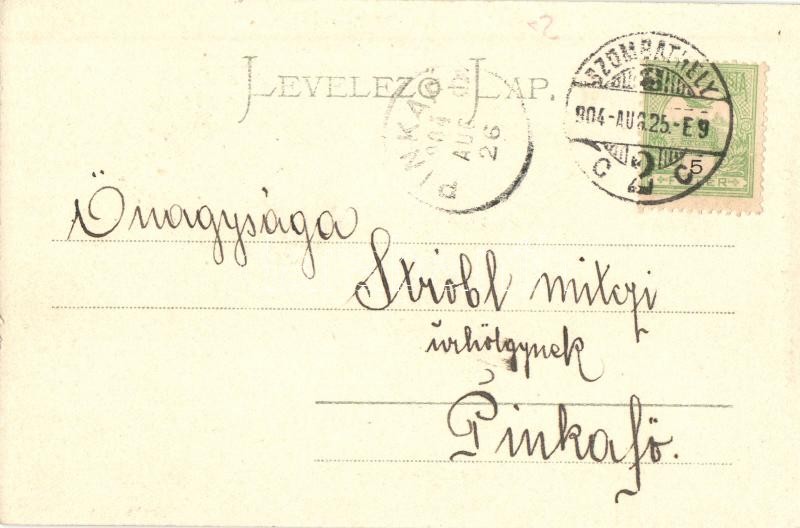 LEVELEZŐ LAP.
SZOMBATHELY
904-AUG.25.-E9
C C
PINKAFŐ
904 AUG 26
5
Őnagysága
Strobl mitzi
úrhölgynek
Pinkafő.